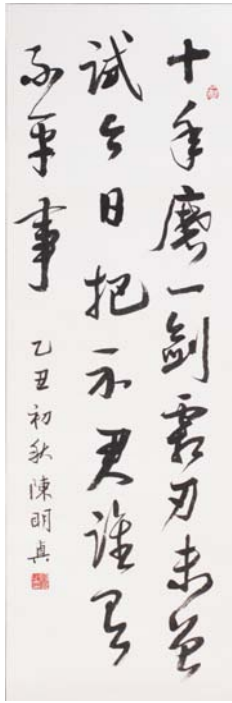 十年磨一劍霜刃未曾
試今日把示君誰有
不平事
乙丑初秋陳明貞